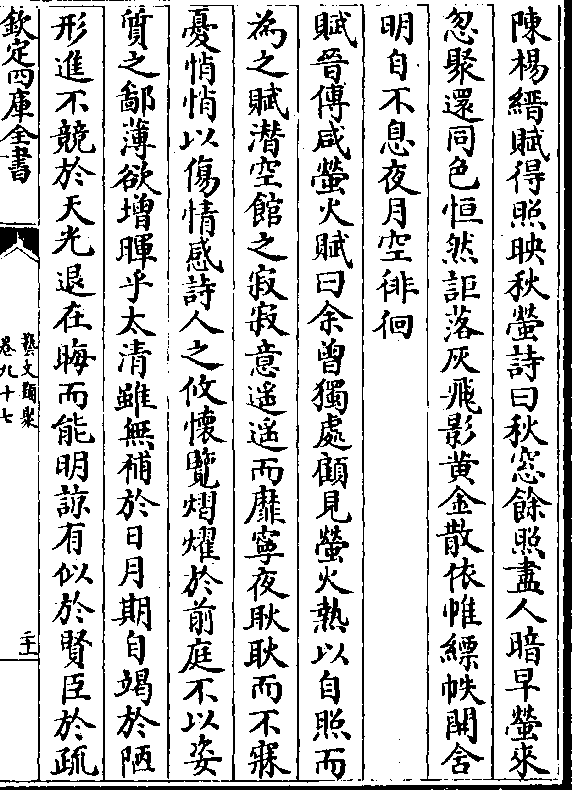 陳楊縉賦得照映秋螢詩曰秋窓餘照盡人暗早螢來
忽聚還同色恒然詎落灰飛影黄金散依帷縹帙開含
明自不息夜月空徘徊
賦晉傅咸螢火賦曰余曽獨處顧見螢火熱以自照而
為之賦潜空館之寂寂意遥遥而靡寧夜耿耿而不寐
憂悄悄以傷情感詩人之攸懷覽熠燿於前庭不以姿
質之鄙薄欲增暉乎太清雖無補於日月期自竭於陋
形進不競於天光退在晦而能明諒有似於賢臣於疏
欽定四庫全書
藝文類聚
卷九十七
二十